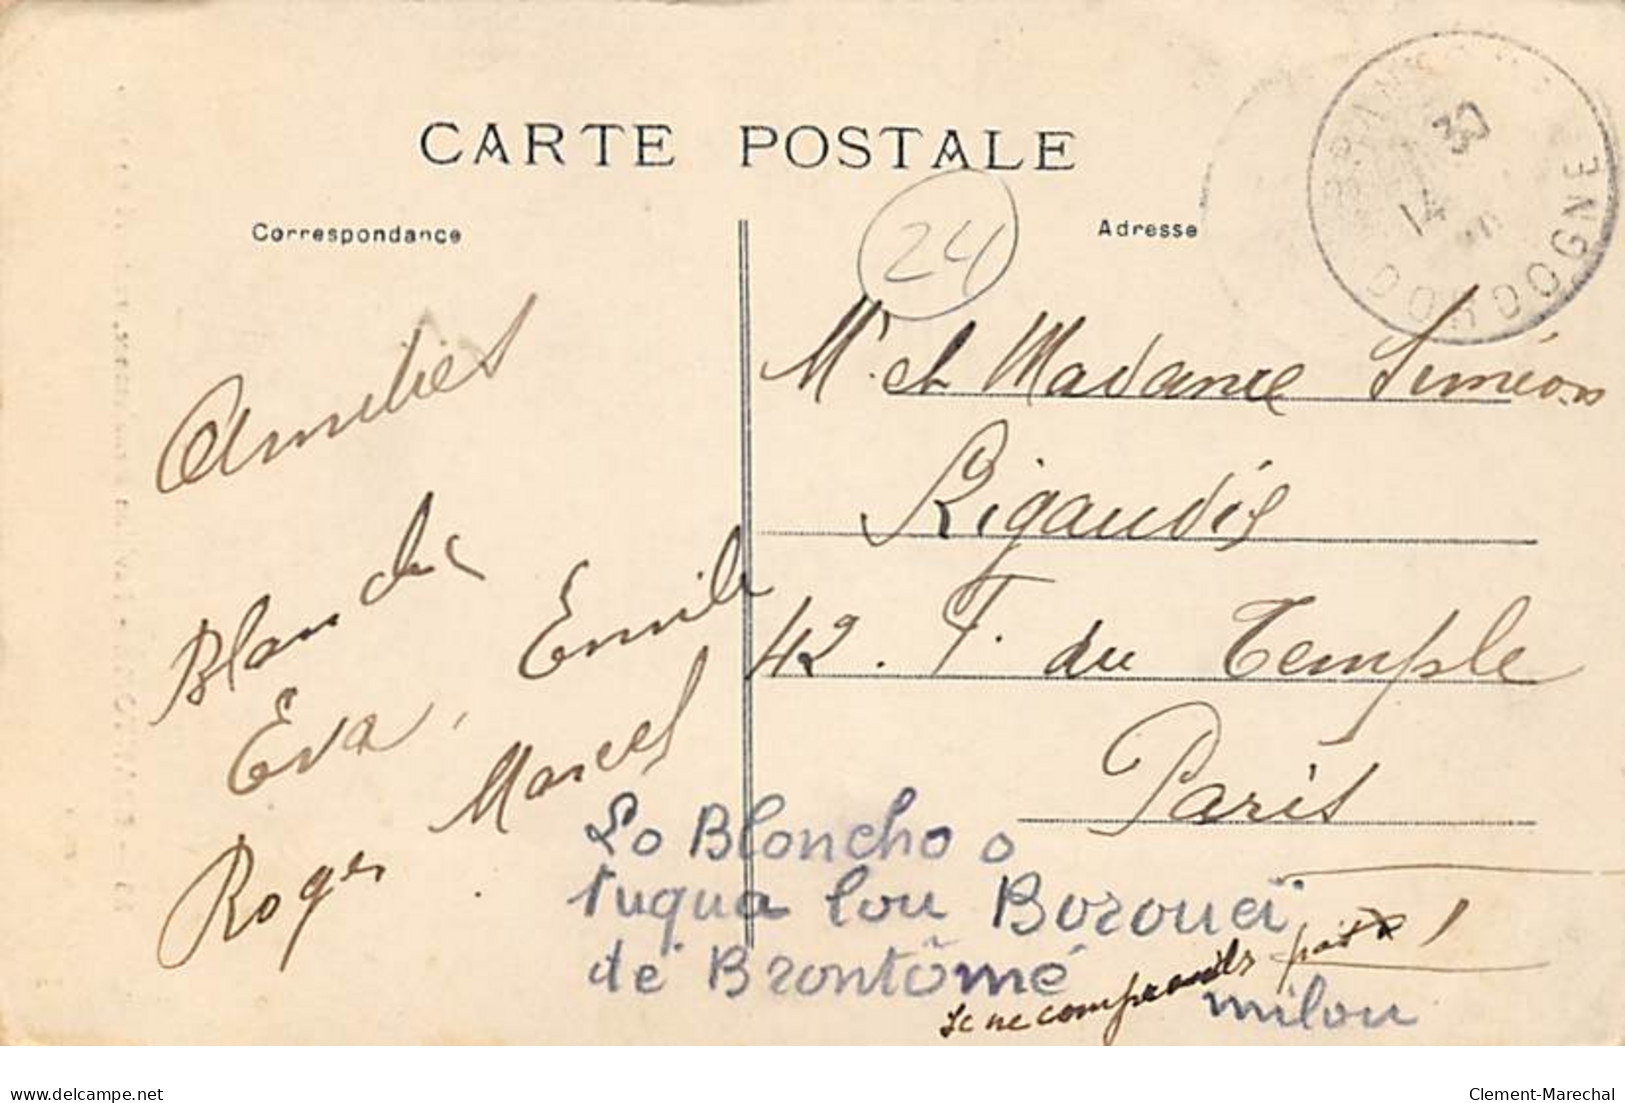 CARTE POSTALE
Correspondance
Adresse
24
30
14
DORDOGNE
Amitiés
Blanche
Emile
Eva,
Marcel
Roger
Mr. et Madame Siméon
Rigaudis
42. F. du Temple
Paris
Lo Bloncho o
tuqua lou Borouei
de Brontômé
milou
Je ne comprends pas !
delcampe.net
Clement-Marechal